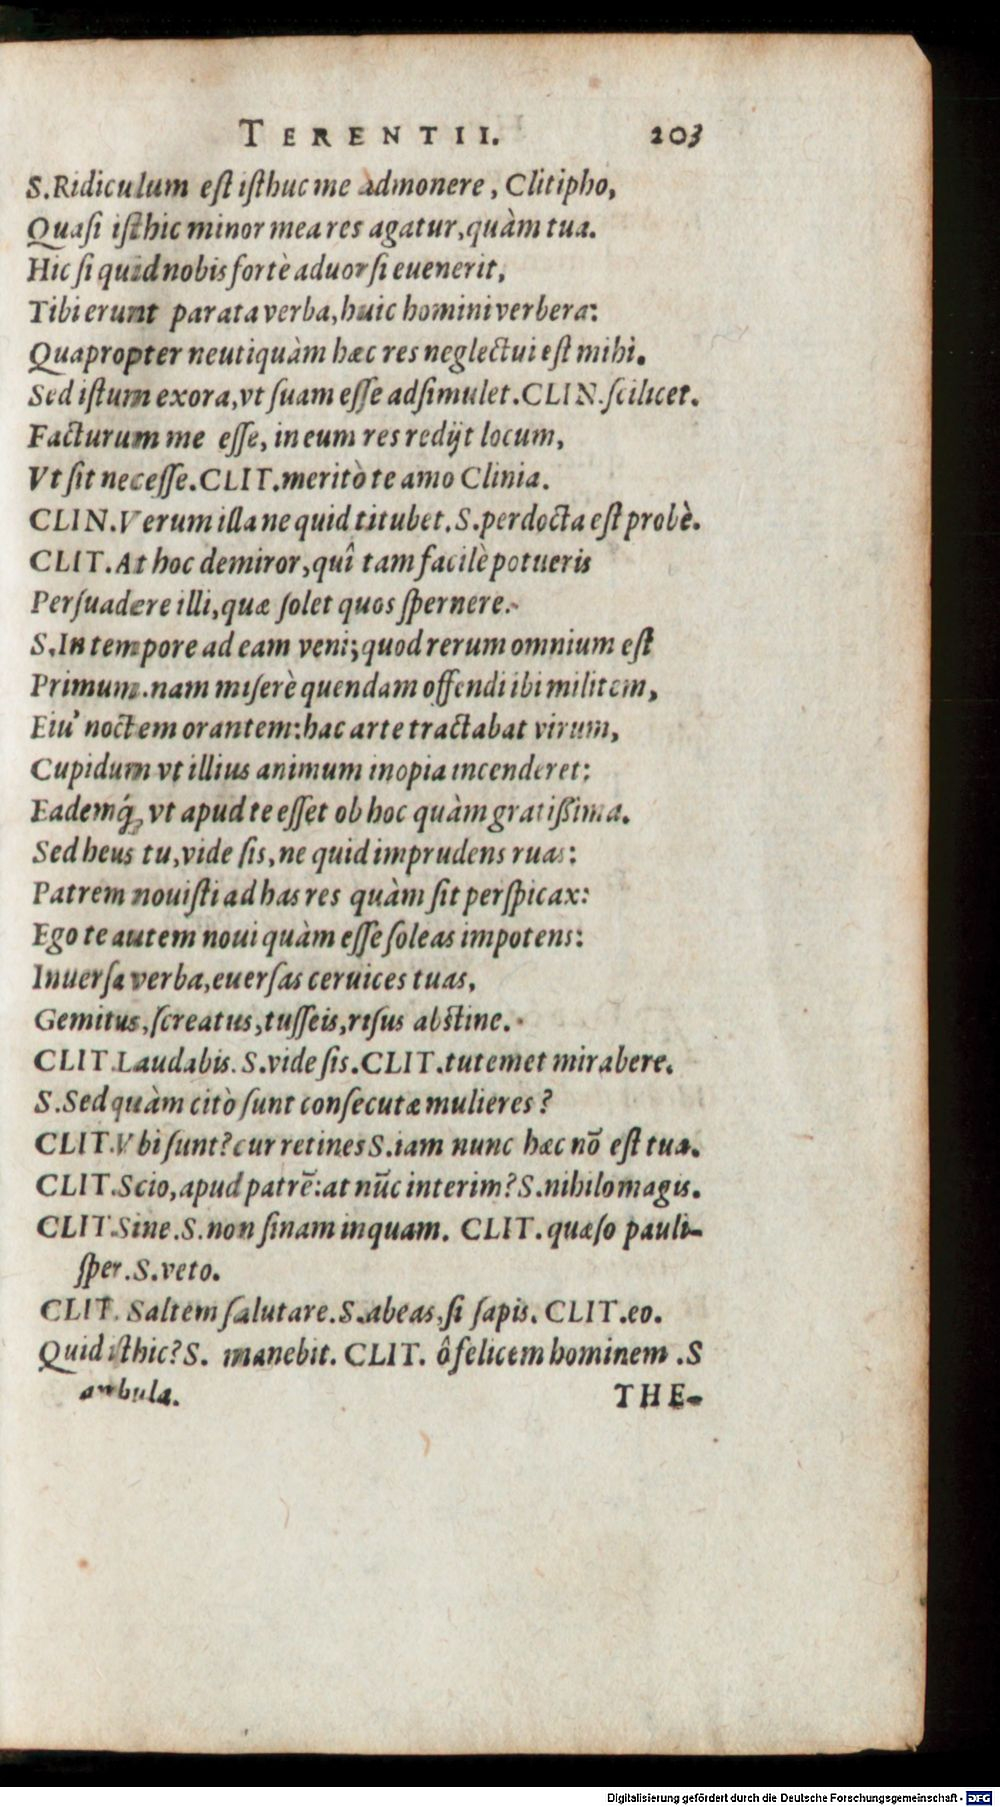 TERENTII. 203
S.Ridiculum est isthuc me admonere, Clitipho,
Quasi isthic minor mea res agatur, quàm tua.
Hic si quid nobis fortè aduorsi euenerit,
Tibi erunt parata verba, huic homini verbera:
Quapropter neutiquàm hæc res neglectui est mihi.
Sed istum exora, vt suam esse adsimulet. CLIN. scilicet.
Facturum me esse, in eum res redijt locum,
Vt sit necesse. CLIT. meritò te amo Clinia.
CLIN. Verum illa ne quid titubet. S. perdocta est probè.
CLIT. At hoc demiror, quî tam facilè potueris
Persuadere illi, quæ solet quos spernere.
S. In tempore ad eam veni; quod rerum omnium est
Primum. nam miserè quendam offendi ibi militem,
Eiu' noctem orantem: hac arte tractabat virum,
Cupidum vt illius animum inopia incenderet:
Eademq́; vt apud te esset ob hoc quàm gratißima.
Sed heus tu, vide sis, ne quid imprudens ruas:
Patrem nouisti ad has res quàm sit perspicax:
Ego te autem noui quàm esse soleas impotens:
Inuersa verba, euersas ceruices tuas,
Gemitus, screatus, tusseis, risus abstine.
CLIT. Laudabis. S. vide sis. CLIT. tutemet mirabere.
S. Sed quàm citò sunt consecutæ mulieres?
CLIT. Vbi sunt? cur retines S. iam nunc hæc nō est tua.
CLIT. Scio, apud patrē: at nūc interim? S. nihilo magis.
CLIT. Sine. S. non sinam inquam. CLIT. quæso pauli-
sper. S. veto.
CLIT. Saltem salutare. S. abeas, si sapis. CLIT. eo.
Quid isthic? S. manebit. CLIT. ô felicem hominem. S
ambula. THE-
Digitalisierung gefördert durch die Deutsche Forschungsgemeinschaft - DFG